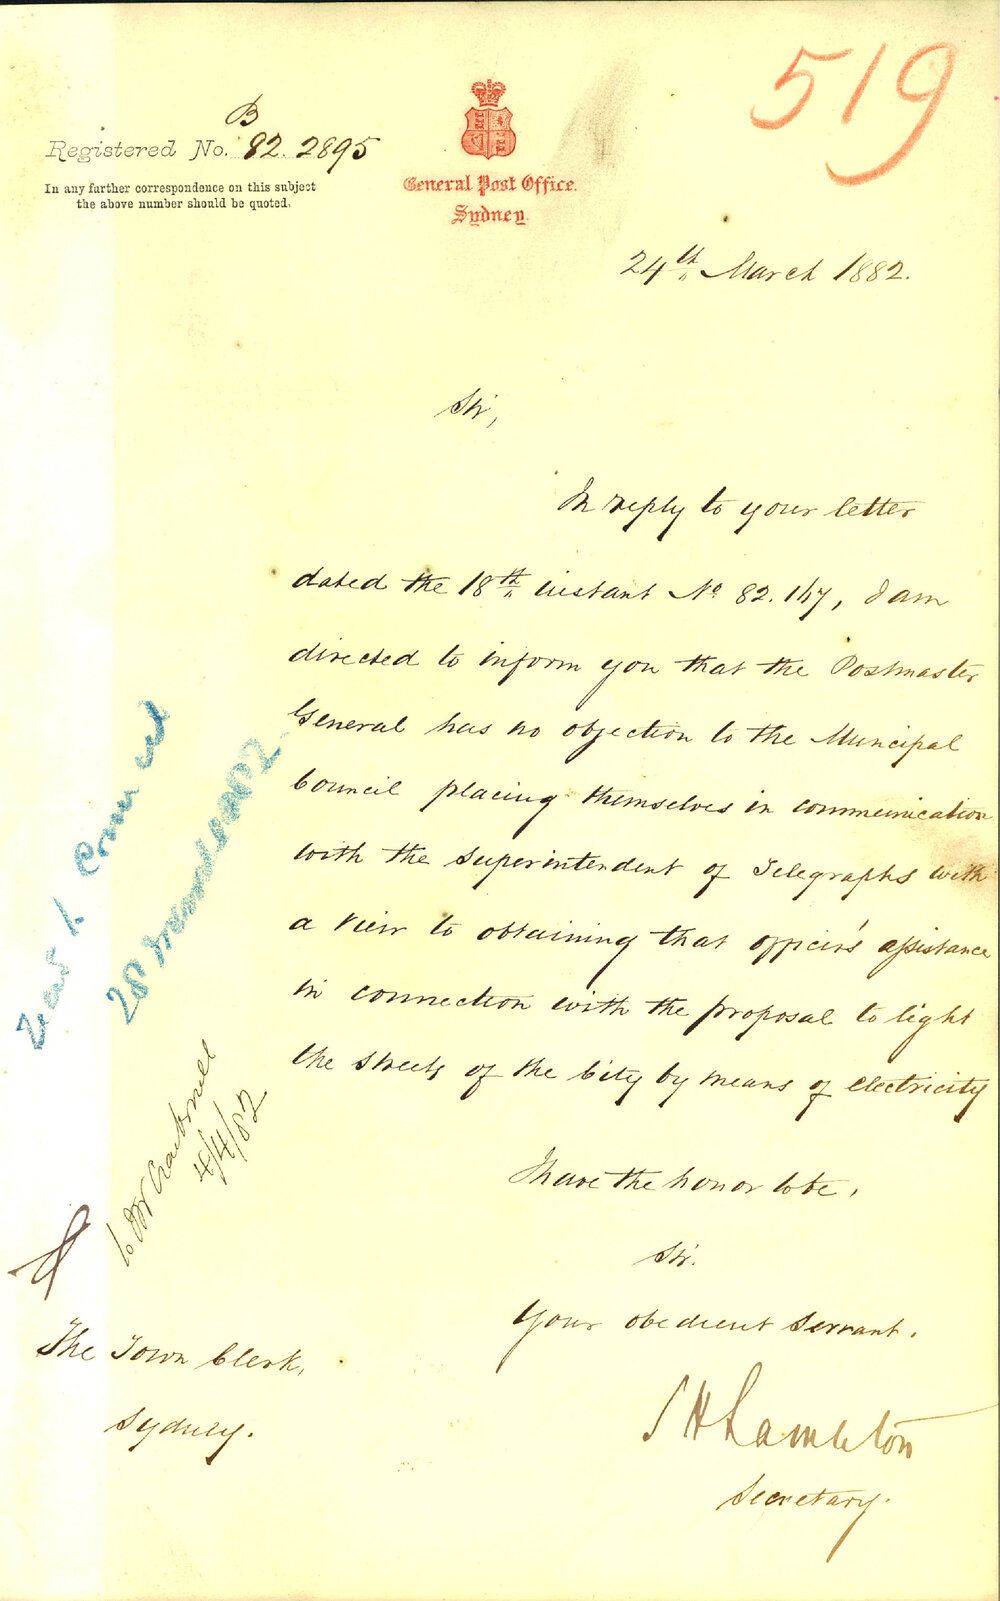 519
B
Registered No. 82.2895
In any further correspondence on this subject
the above number should be quoted.
General Post Office.
Sydney.
24th March 1882.
Sir,
In reply to your letter
dated the 18th instant No 82.167, I am
directed to inform you that the Postmaster
General has no objection to the Municipal
Council placing themselves in communication
with the Superintendent of Telegraphs with
a view to obtaining that officer's assistance
in connection with the proposal to light
the streets of the City by means of electricity
I have the honor to be,
Sir.
Your obedient Servant.
S H Lambton
Secretary.
28
4/4/82
The Town Clerk,
Sydney.